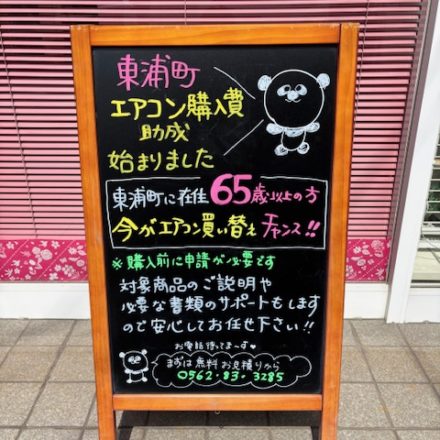 東浦町
エアコン購入費
助成
始まりました
東浦町に在住65歳以上の方
今がエアコン買い替えチャンス!!
※購入前に申請が必要です
対象商品のご説明や
必要な書類のサポートもします
ので安心してお任せ下さい!!
お電話待ってまーす♥
まずは無料お見積りから
0562-83-3285